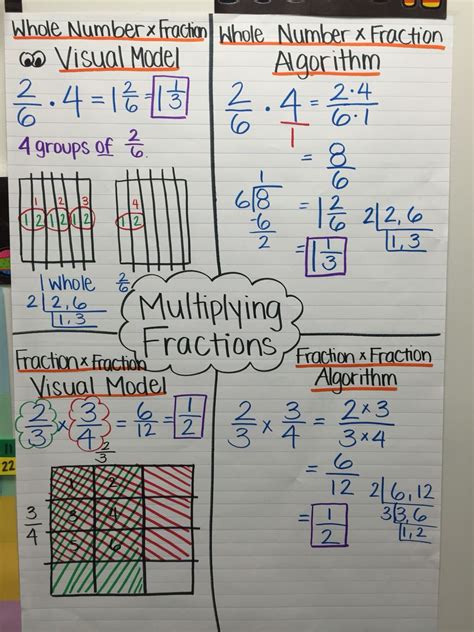 Whole Number x Fraction
Visual Model
2/6 · 4 = 1 2/6 = 1 1/3
4 groups of 2/6
1 2 3 4
1 2 1 2 1 2 1 2
1 Whole 2/6
2 | 2, 6
1, 3
Whole Number x Fraction
Algorithm
2/6 · 4/1 = 2·4/6·1
= 8/6
= 1 2/6
= 1 1/3
1
6 8
-6
2
2 | 2, 6
1, 3
Multiplying
Fractions
Fraction x Fraction
Visual Model
2/3 x 3/4 = 6/12 = 1/2
2/3
3/4
1 2
3 4
5 6
Fraction x Fraction
Algorithm
2/3 x 3/4 = 2x3/3x4
= 6/12
= 1/2
2 | 6, 12
3 | 3, 6
1, 2
11
22